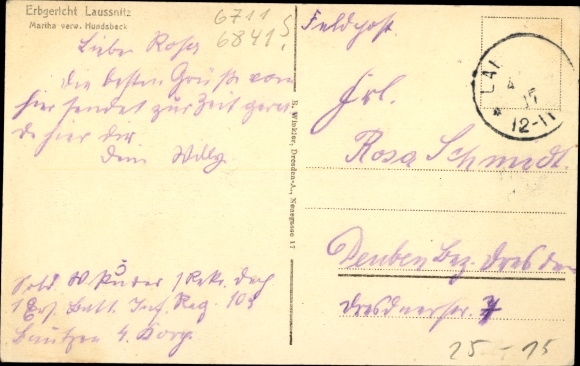 Erbgericht Laussnitz
Martha verw. Hundsbeck
6711
6841
Liebe Rosa
Die besten Grüße von
hier sendet zur Zeit gera
de hier der
dein Willy
Sold W.
1 Ers. Batt. Inf. Reg. 103
Bautzen 4. Korp.
R. Winkler, Dresden-A., Neuegasse 17
Feldpost.
LAU
17
12-1
Frl.
Rosa Schmidt.
Deuben Bez. Dresden
Dresdnerstr. 7
25 - 15